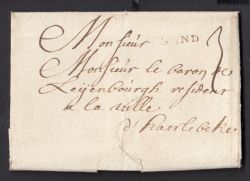 Monsieur GAND 3
Monsieur le baron de
Leyenbourgh resident
a la ville
d'haerlebeke